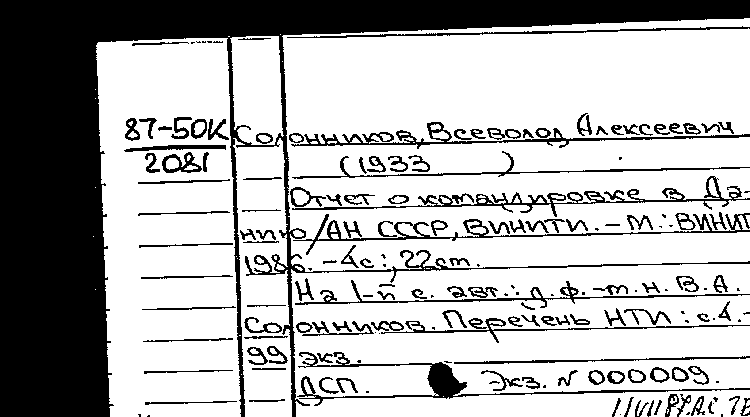 87-50К Солонников, Всеволод Алексеевич
2081 (1933 )
Отчет о командировке в Да-
нию/АН СССР, ВИНИТИ. - М.: ВИНИТ
1986. - 4с.; 22см.
На 1-й с. авт.: д.ф.-т.н. В.А.
Солонников. Перечень НТИ: с.4.-
99 экз.
ДСП. Экз. № 000009.